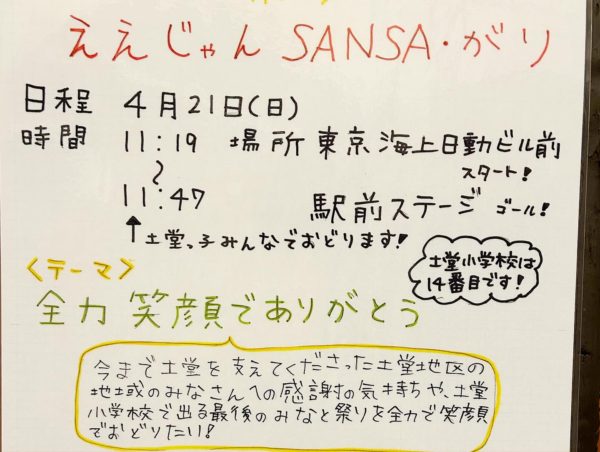 ええじゃんSANSA・がり
日程 4月21日(日)
時間 11:19 場所 東京海上日動ビル前
スタート!
〜
11:47 駅前ステージ ゴール!
↑土堂っ子みんなでおどります!
土堂小学校は
14番目です!
<テーマ>
全力 笑顔でありがとう
今まで土堂を支えてくださった土堂地区の
地域のみなさんへの感謝の気持ちや、土堂
小学校で出る最後のみなと祭りを全力で笑顔
でおどりたい!